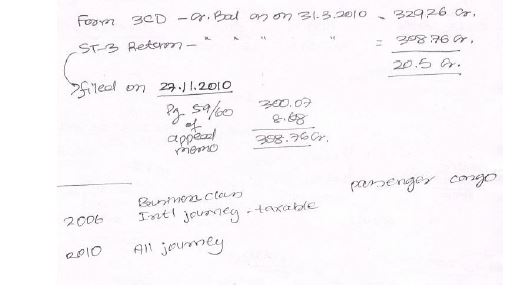 Form 3CD - Cr. Bal as on 31.3.2010 - 329.26 Cr.
ST-3 Return - " " " = 308.76 Cr.
20.5 Cr.
filed on 27.11.2010
Pg 59/60 300.07
of 8.68
appeal 308.76 Cr.
memo
passenger cargo
Business class
2006 Int'l journey - taxable
2010 All journey